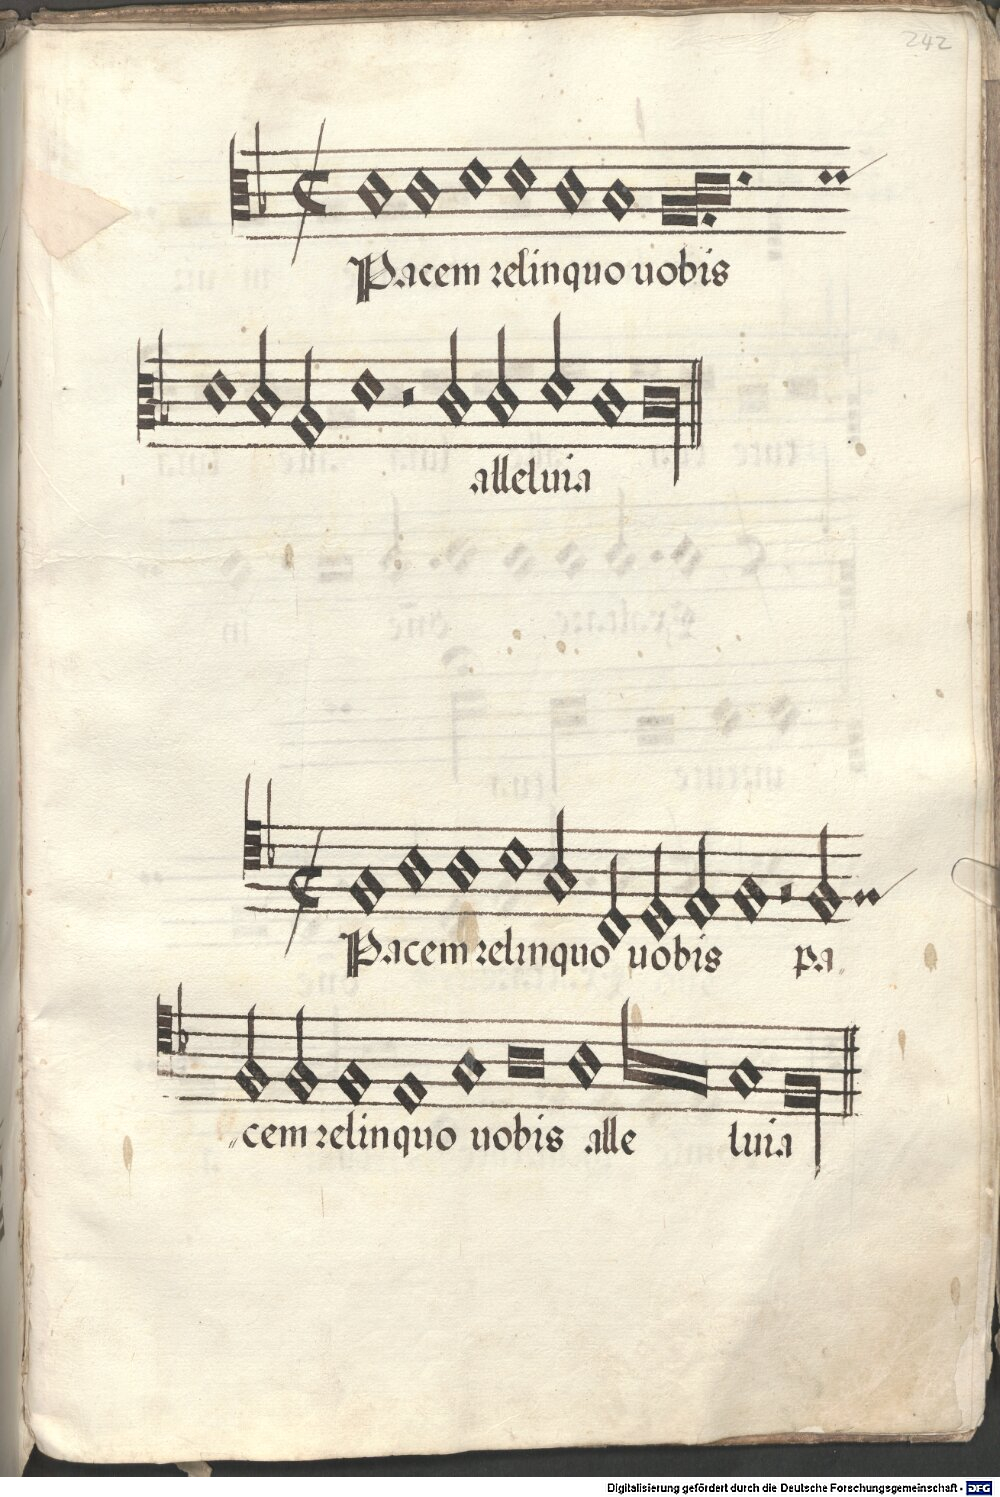 242
Pacem relinquo uobis
alleluia
Pacem relinquo uobis pa
cem relinquo uobis alle luia
Digitalisierung gefördert durch die Deutsche Forschungsgemeinschaft - DFG